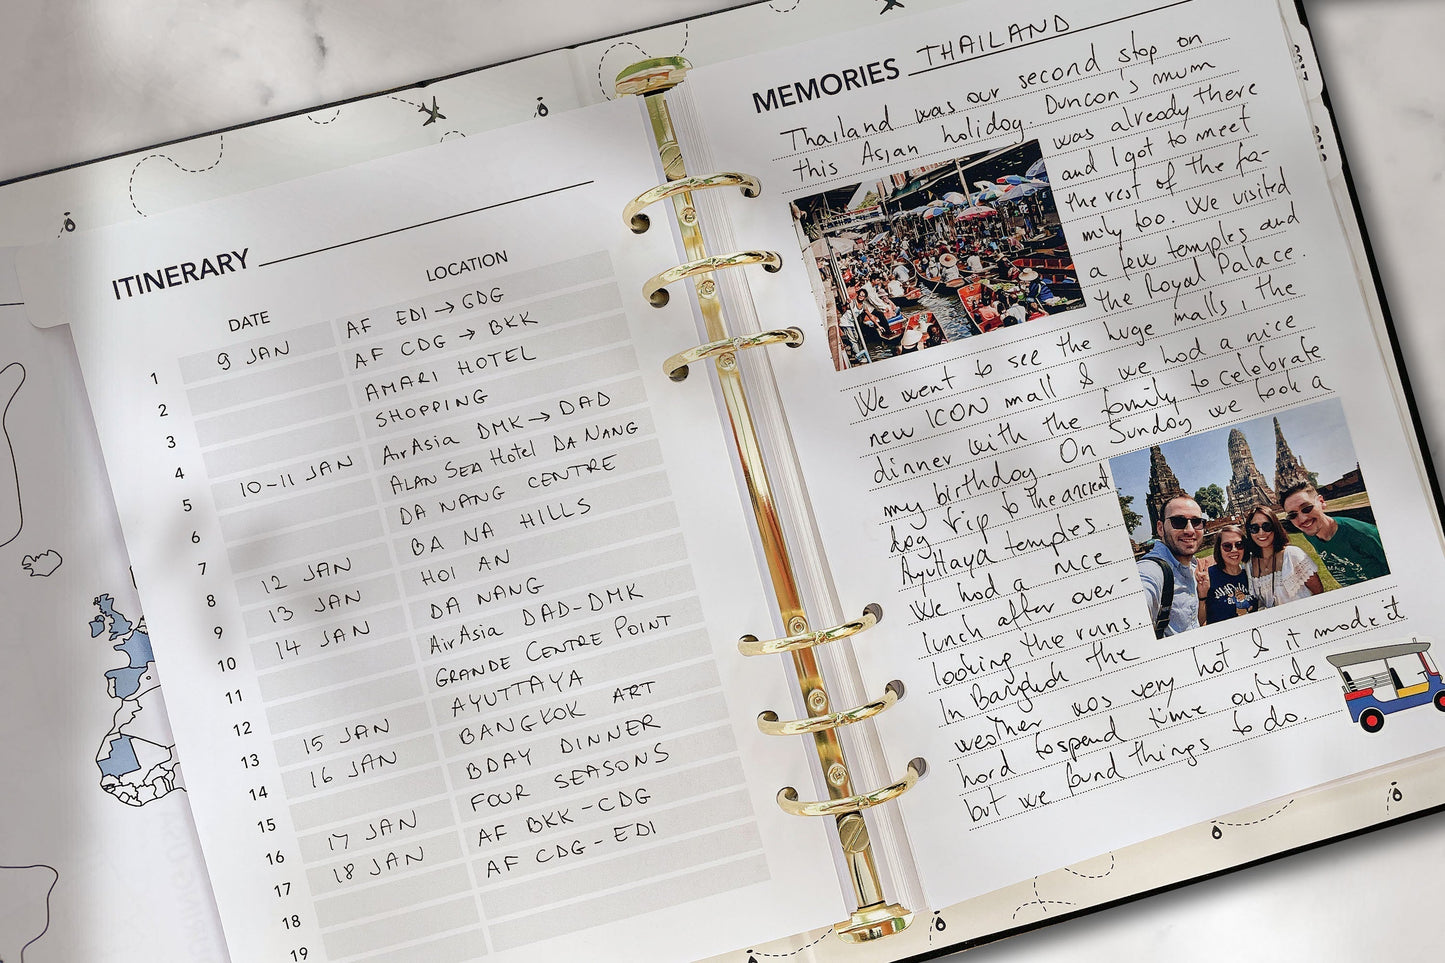 ITINERARY
DATE LOCATION
1 9 JAN AF EDI → CDG
2 AF CDG → BKK
3 AMARI HOTEL
4 SHOPPING
5 10-11 JAN AirAsia DMK → DAD
6 ALAN SEA Hotel DA NANG
7 DA NANG CENTRE
8 12 JAN BA NA HILLS
9 13 JAN HOI AN
10 14 JAN DA NANG
11 AirAsia DAD-DMK
12 GRANDE CENTRE POINT
13 15 JAN AYUTTAYA
14 16 JAN BANGKOK ART
15 BDAY DINNER
16 17 JAN FOUR SEASONS
17 18 JAN AF BKK-CDG
18 AF CDG-EDI
19
MEMORIES THAILAND
Thailand was our second stop on
this Asian holiday. Duncan's mum
was already there
and I got to meet
the rest of the fa-
mily too. We visited
a few temples and
the Royal Palace.
We went to see the huge malls, the
new ICON mall & we had a nice
dinner with the family to celebrate
my birthday. On Sunday we took a
day trip to the ancient
Ayuttaya temples.
We had a nice
lunch after over-
looking the ruins.
In Bangkok the
weather was very hot & it made it
hard to spend time outside
but we found things to do.